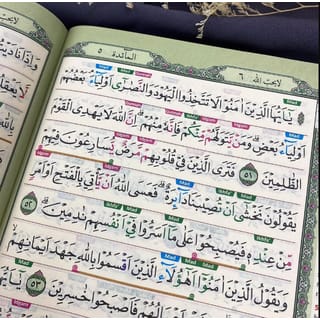 لا يحب الله ٦
المائدة ٥
يَٰٓأَيُّهَا الَّذِينَ اٰمَنُوْا لَا تَتَّخِذُوا الْيَهُوْدَ وَالنَّصٰرٰٓى اَوْلِيَآءَ بَعْضُهُمْ
اَوْلِيَآءُ بَعْضٍ وَمَنْ يَّتَوَلَّهُمْ مِّنْكُمْ فَاِنَّهٗ مِنْهُمْ اِنَّ اللّٰهَ لَا يَهْدِى الْقَوْمَ
الظّٰلِمِيْنَ ٥١ فَتَرَى الَّذِيْنَ فِيْ قُلُوْبِهِمْ مَّرَضٌ يُّسَارِعُوْنَ فِيْهِمْ
يَقُوْلُوْنَ نَخْشٰٓى اَنْ تُصِيْبَنَا دَآئِرَةٌ فَعَسَى اللّٰهُ اَنْ يَّأْتِيَ بِالْفَتْحِ اَوْ اَمْرٍ
مِّنْ عِنْدِهٖ فَيُصْبِحُوْا عَلٰى مَآ اَسَرُّوْا فِيْٓ اَنْفُسِهِمْ نٰدِمِيْنَ ٥٢
وَيَقُوْلُ الَّذِيْنَ اٰمَنُوْٓا اَهٰٓؤُلَآءِ الَّذِيْنَ اَقْسَمُوْا بِاللّٰهِ جَهْدَ اَيْمَانِهِمْ
اَعْمَالُهُمْ فَاَصْبَحُوْا خٰسِرِيْنَ ٥٣